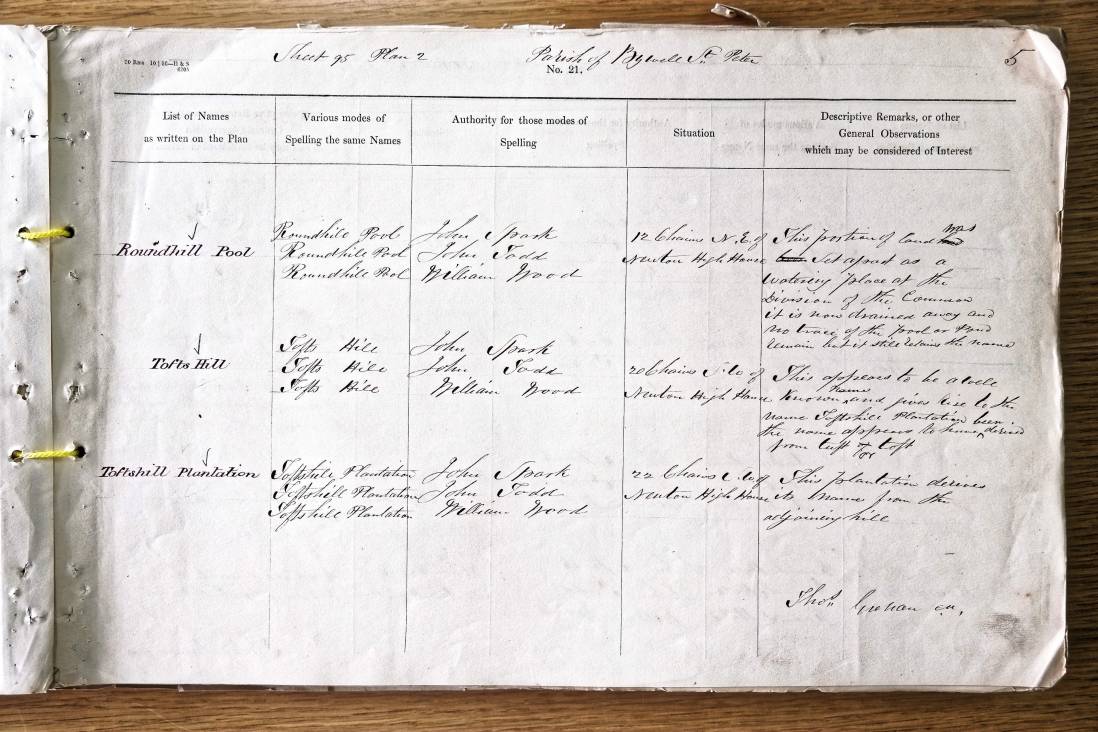 20 Rms 10 | 56—H & S
6205
Sheet 95 Plan 2
Parish of Bywell St. Peter
5
No. 21.
List of Names
as written on the Plan
Various modes of
Spelling the same Names
Authority for those modes of
Spelling
Situation
Descriptive Remarks, or other
General Observations
which may be considered of Interest
Roundhill Pool
Roundhill Pool
Roundhill Pool
Roundhill Pool
John Spark
John Todd
William Wood
12 Chains N.E. of
Newton High House
This portion of land was
set apart as a
watering place at the
Division of the Common
it is now drained away and
no trace of the pool or Pond
remain but it still retains the name
Tofts Hill
Tofts Hill
Tofts Hill
Tofts Hill
John Spark
John Todd
William Wood
20 Chains of
Newton High House
This appears to be a well
known name and gives rise to the
name Toftshill Plantation
the name appears to have been derived
from tuft or toft
Toftshill Plantation
Toftshill Plantation
Toftshill Plantation
Toftshill Plantation
John Spark
John Todd
William Wood
22 Chains of
Newton High House
This plantation derives
its name from the
adjoining hill
Thos.